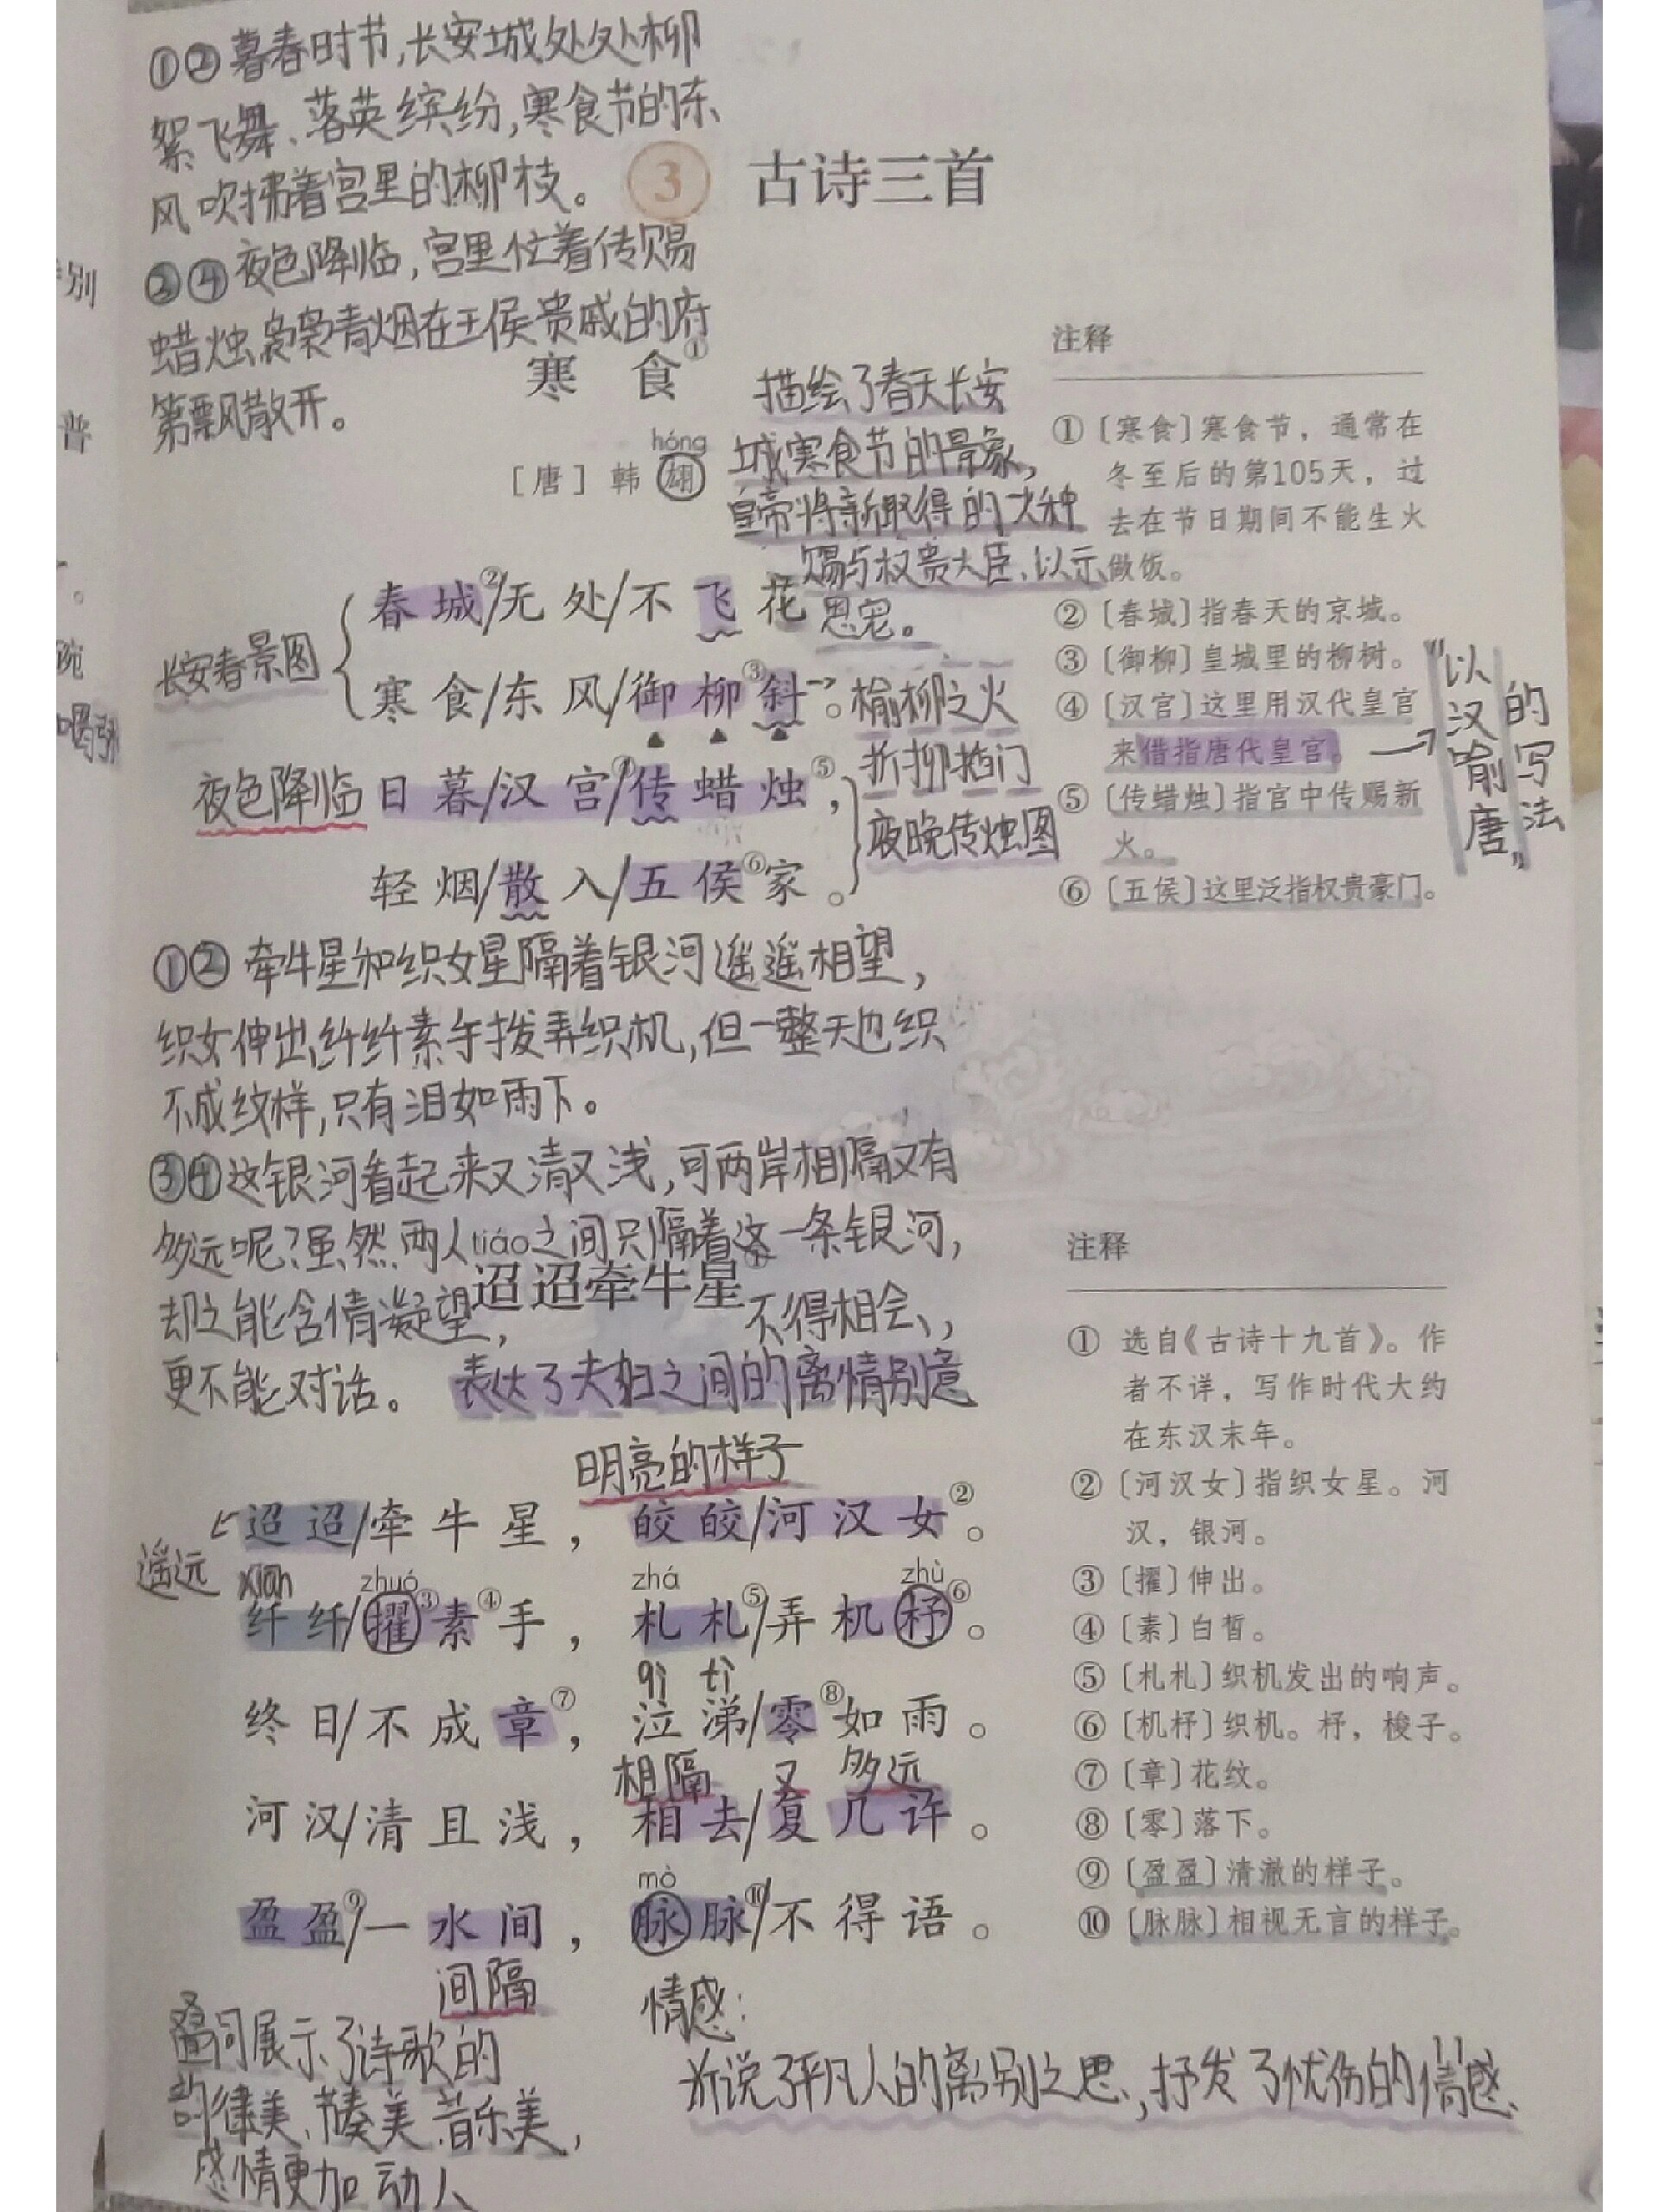 ①②暮春时节,长安城处处柳
絮飞舞、落英缤纷,寒食节的东
风吹拂着宫里的柳枝。
3 古诗三首
③④夜色降临,宫里忙着传赐
蜡烛,袅袅青烟在王侯贵戚的府
第飘散开。
别
普
。
碗
喝
寒食①
hóng
[唐] 韩翃
描绘了春天长安
城寒食节的景象,
皇帝将新取得的火种
赐与权贵大臣、以示
恩宠。
春城②/无处/不飞花
长安春景图
寒食/东风/御柳③斜→。
榆柳之火
折柳插门
夜色降临
日暮/汉宫④/传蜡烛⑤,
夜晚传烛图
轻烟/散入/五侯⑥家。
注释
①〔寒食〕寒食节,通常在
冬至后的第105天,过
去在节日期间不能生火
做饭。
②〔春城〕指春天的京城。
③〔御柳〕皇城里的柳树。
④〔汉宫〕这里用汉代皇宫
来借指唐代皇宫。→
“以汉喻唐”
的写法
⑤〔传蜡烛〕指宫中传赐新
火。
⑥〔五侯〕这里泛指权贵豪门。
①②牵牛星和织女星隔着银河遥遥相望,
织女伸出纤纤素手拨弄织机,但一整天也织
不成纹样,只有泪如雨下。
③④这银河看起来又清又浅,可两岸相隔又有
多远呢?虽然两人之间只隔着这一条银河,
tiáo
迢迢牵牛星①
却之能含情凝望, 不得相会、,
更不能对话。 表达了夫妇之间的离情别意
明亮的样子
迢迢/牵牛星,皎皎/河汉女②。
遥远
xiān zhuó zhá zhù
纤纤/擢③素④手,札札⑤/弄机杼⑥。
qì tì
终日/不成章⑦,泣涕/零⑧如雨。
相隔 又 多远
河汉/清且浅,相去/复几许。
mò
盈盈⑨/一水间,脉脉⑩/不得语。
间隔
注释
① 选自《古诗十九首》。作
者不详,写作时代大约
在东汉末年。
②〔河汉女〕指织女星。河
汉,银河。
③〔擢〕伸出。
④〔素〕白皙。
⑤〔札札〕织机发出的响声。
⑥〔机杼〕织机。杼,梭子。
⑦〔章〕花纹。
⑧〔零〕落下。
⑨〔盈盈〕清澈的样子。
⑩〔脉脉〕相视无言的样子。
叠词展示了诗歌的
韵律美、节奏美、音乐美,
感情更加动人
情感:
诉说了平凡人的离别之思,抒发了忧伤的情感、